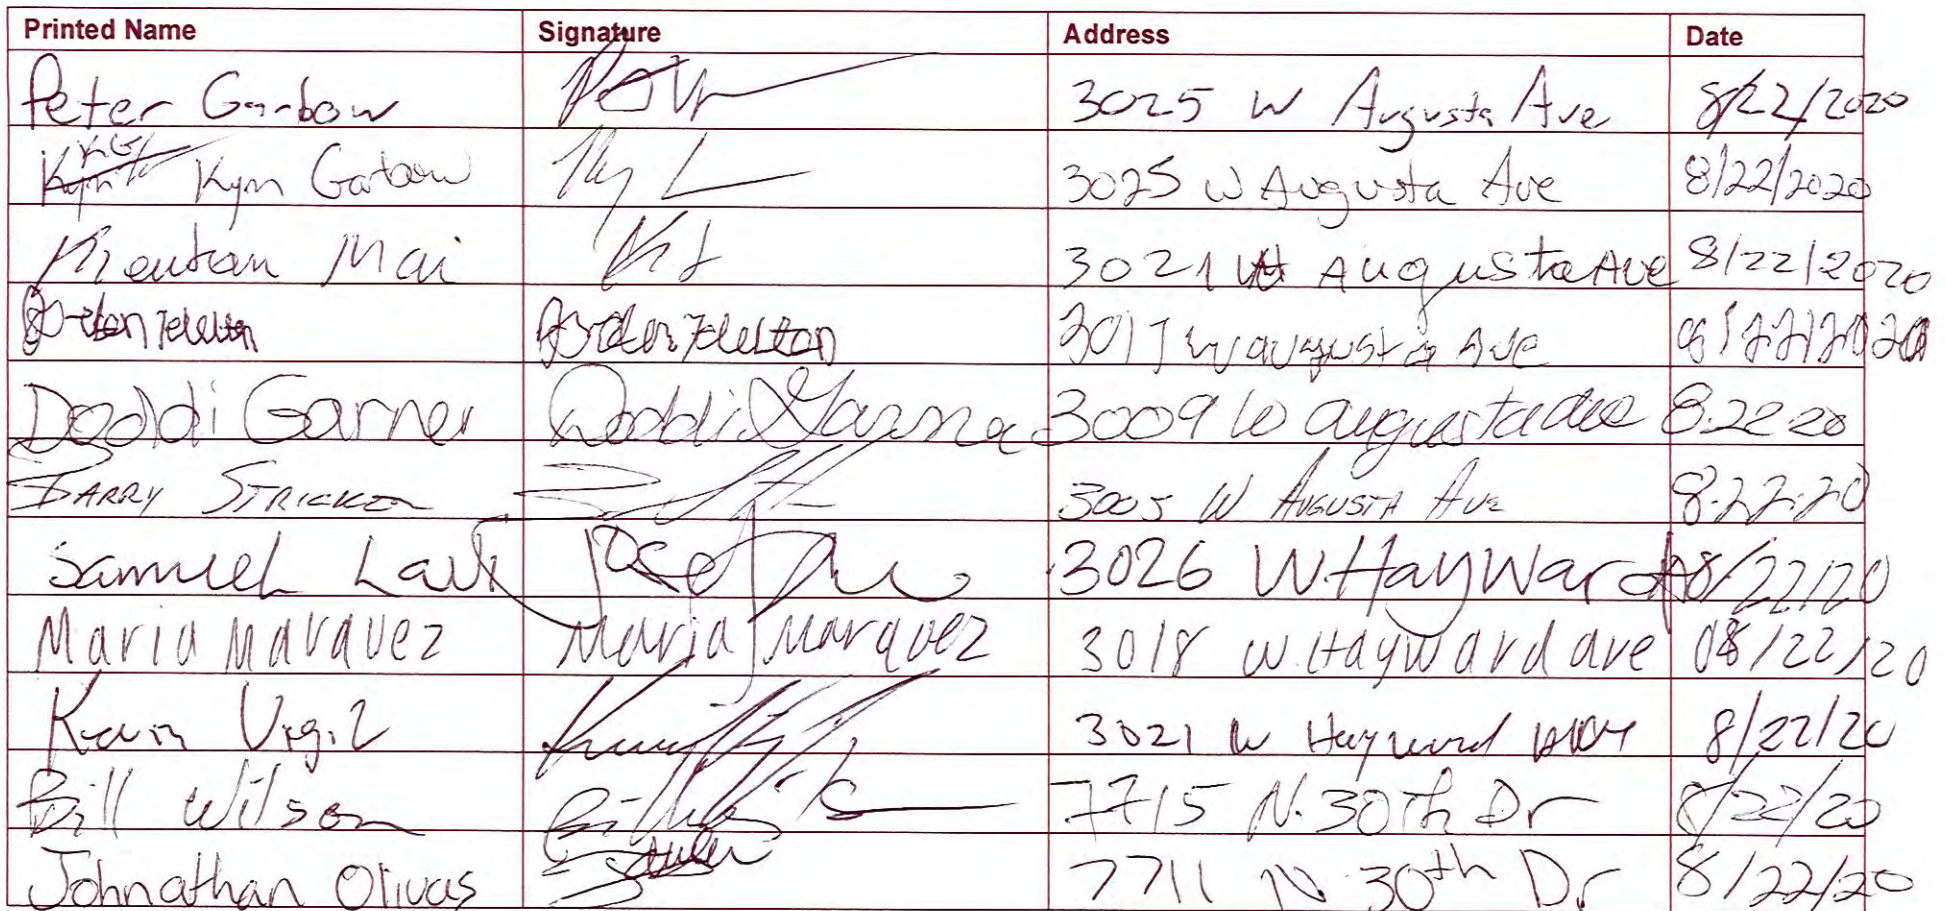 Printed Name Signature Address Date
Peter Garbow 3025 W Augusta Ave 8/22/2020
KG Kym Garbow 3025 W Augusta Ave 8/22/2020
Mai 3021 W Augusta Ave 8/22/2020
3017 W augusta Ave 8/22/2020
Doddi Garner Doddi Garner 3009 W augusta ave 8.22.20
BARRY STRICKER 3005 W AUGUSTA AVE 8.22.20
Samuel 3026 W Hayward 8/22/20
Maria Marquez Maria Marquez 3018 W. Hayward ave 08/22/20
Kevin Vigil 3021 W Hayward 8/22/20
Bill Wilson 7715 N. 30th Dr 8/22/20
Johnathan Olivas 7711 N 30th Dr 8/22/20